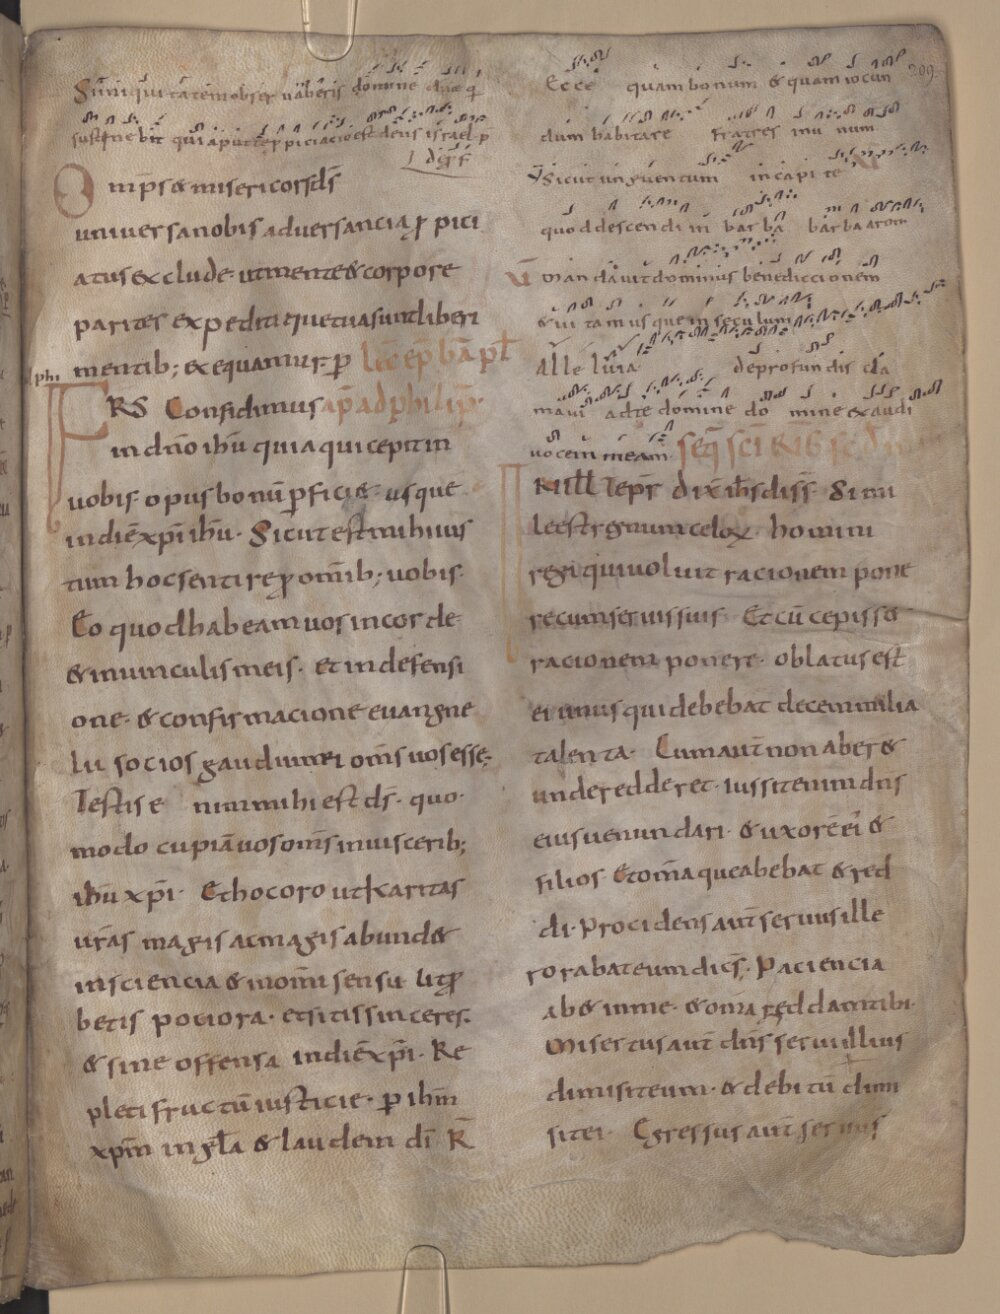 Siiniquitatem observaberis domine dne q̄
sustinebit quia aput te p̄piciacio est deus israel p
Omp̄s & misericors ds̄
universa nobis adversancia p̱ pici
atus exclude· ut mente & corpore
pariter expediti que tua sunt liberi
mentib; exequamur· ꝑ lic ep̄ bĀ pl
FRS Confidimus ap̄ ad philip̄
in dn̄o ihū quia qui cepit in
uobis· opus bonū ꝑficiet· usque
in diē xp̄i ihū· Sicut est mihi ius
tum hoc sentire p̱ om̄ib; uobis·
Eo quod habeam uos in corde
& inuinculis meis· et in defensi
one· & confirmacione euange
lii socios gaudii mei om̄s uos esse;
Testis e nim mihi est ds̄· quo·
modo cupiā uos om̄s in uiscerib;
ihū xp̄i· Et hoc oro ut karitas
ur̄as magis ac magis abund&
in sciencia & in om̄i sensu· Ut p̱
betis pociora· et sitis sinceres·
& sine offensa in diē xp̄i· Re
pleti fructū iusticie· ꝑ ihm̄
xp̄m in gl̄a & laudem di̅ R̄
209
Ecce quam bonum & quam iocun
dum habitare fratres inu num
V Sicut unguentum in capi te
quod descendi in bar ba barba aron
V Mandauit dominus benediccionem
& ui tam usque in seculum
Alle luia de profundis cla
maui ad te domine do mine exaudi
uocem meam seq̄ sc̄i
In ill̄ temp̄r dixit ih̄s dis̄s Simi
le est regnum celoꝝ homini
regi qui uoluit racionem pone
re cum seruis suis Et cū cepiss&
racionem ponere· oblatus est
ei unus qui debebat decem milia
talenta· Cum aut̄ non aber&
unde redderet· iussit enim dn̄s
eius uenundari· & uxorē ei &
filios Et om̄a que abebat & red
di· Procidens aut̄ seruus ille
rorabat eum dic̄s· Paciencia
ab& in me· & om̄a reddam tibi·
Misertus aut̄ dn̄s serui illius
dimisit eum· & debitū dimi
sit ei· Egressus aut̄ seruus